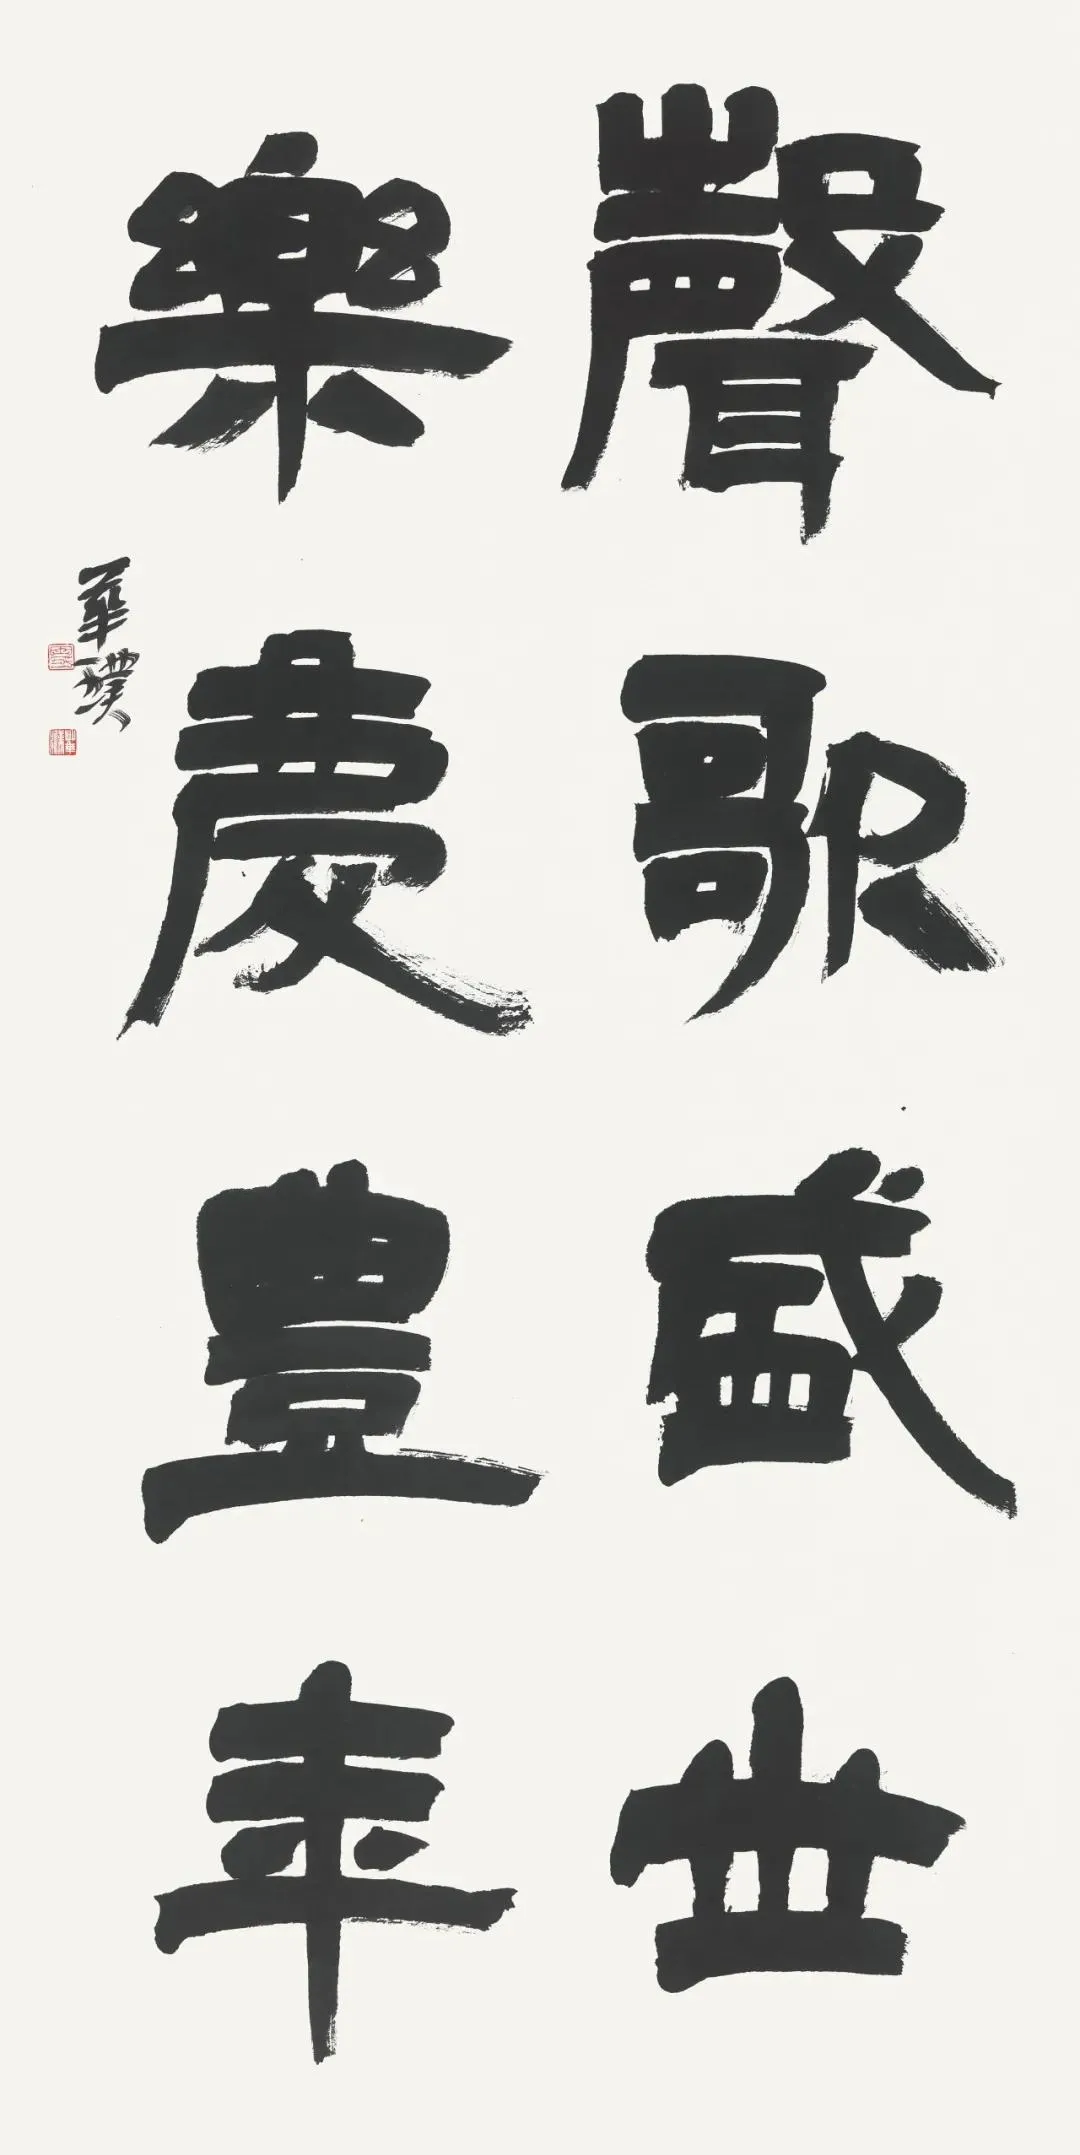 聲歌盛世
樂慶豐年
華璞